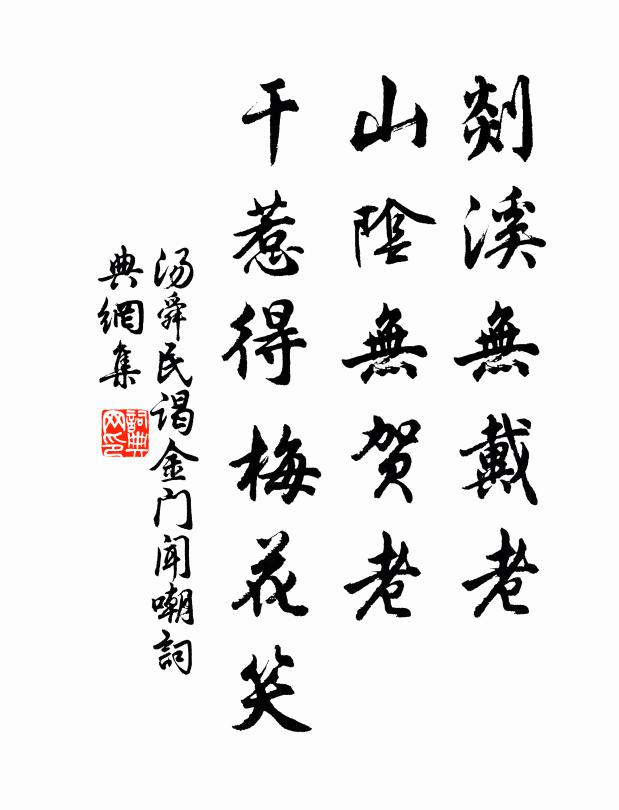 剡溪無戴老
山陰無贺老
干惹得梅花笑
汤舜民谒金门闻嘲詞
典網集
詞典
网印